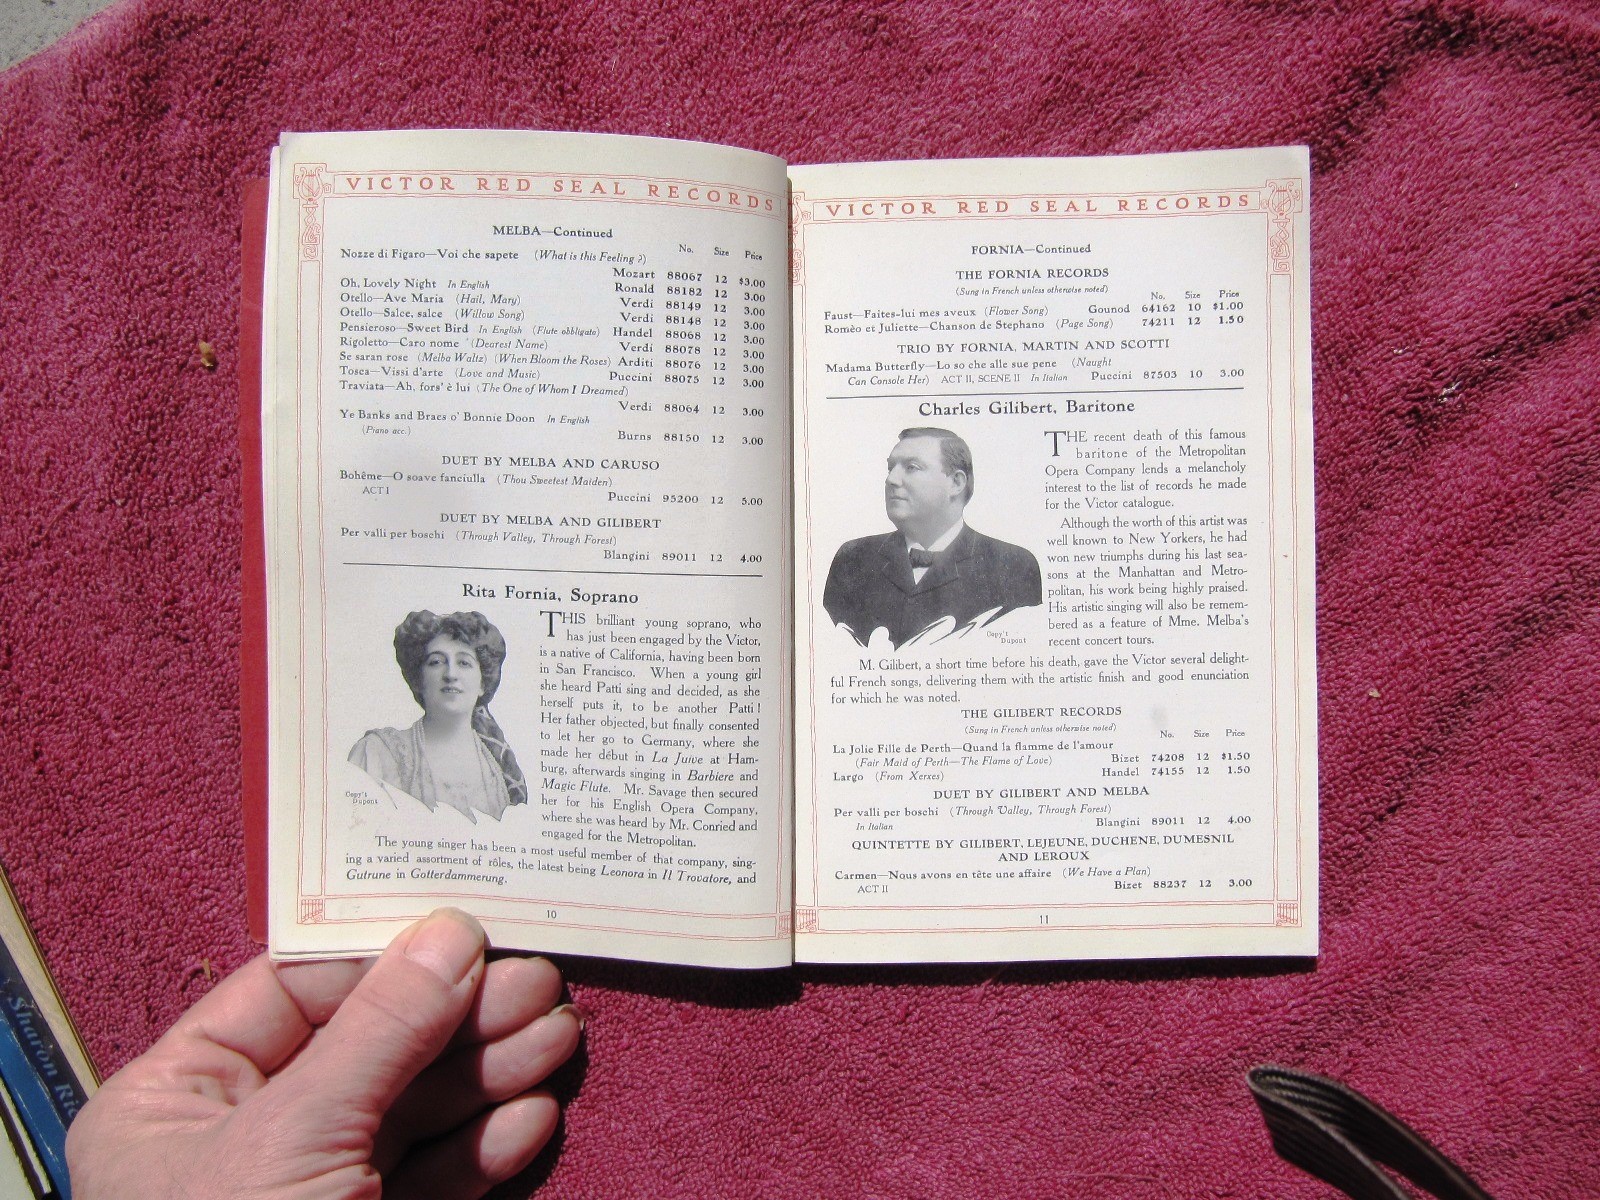 VICTOR RED SEAL RECORDS
MELBA—Continued
No. Size Price
Nozze di Figaro—Voi che sapete (What is this Feeling?)
Mozart 88067 12 $3.00
Oh, Lovely Night In English Ronald 88182 12 3.00
Otello—Ave Maria (Hail, Mary) Verdi 88149 12 3.00
Otello—Salce, salce (Willow Song) Verdi 88148 12 3.00
Pensieroso—Sweet Bird In English (Flute obbligato) Handel 88068 12 3.00
Rigoletto—Caro nome (Dearest Name) Verdi 88078 12 3.00
Se saran rose (Melba Waltz) (When Bloom the Roses) Arditi 88076 12 3.00
Tosca—Vissi d'arte (Love and Music) Puccini 88075 12 3.00
Traviata—Ah, fors' è lui (The One of Whom I Dreamed)
Verdi 88064 12 3.00
Ye Banks and Braes o' Bonnie Doon In English
(Piano acc.) Burns 88150 12 3.00
DUET BY MELBA AND CARUSO
Bohême—O soave fanciulla (Thou Sweetest Maiden)
ACT I Puccini 95200 12 5.00
DUET BY MELBA AND GILIBERT
Per valli per boschi (Through Valley, Through Forest)
Blangini 89011 12 4.00
Rita Fornia, Soprano
THIS brilliant young soprano, who
has just been engaged by the Victor,
is a native of California, having been born
in San Francisco. When a young girl
she heard Patti sing and decided, as she
herself puts it, to be another Patti!
Her father objected, but finally consented
to let her go to Germany, where she
made her début in La Juive at Ham-
burg, afterwards singing in Barbiere and
Magic Flute. Mr. Savage then secured
her for his English Opera Company,
where she was heard by Mr. Conried and
engaged for the Metropolitan.
Copy't
Dupont
The young singer has been a most useful member of that company, sing-
ing a varied assortment of rôles, the latest being Leonora in Il Trovatore, and
Gutrune in Gotterdammerung.
10
VICTOR RED SEAL RECORDS
FORNIA—Continued
THE FORNIA RECORDS
(Sung in French unless otherwise noted)
No. Size Price
Faust—Faites-lui mes aveux (Flower Song) Gounod 64162 10 $1.00
Romèo et Juliette—Chanson de Stephano (Page Song) 74211 12 1.50
TRIO BY FORNIA, MARTIN AND SCOTTI
Madama Butterfly—Lo so che alle sue pene (Naught
Can Console Her) ACT II, SCENE II In Italian Puccini 87503 10 3.00
Charles Gilibert, Baritone
THE recent death of this famous
baritone of the Metropolitan
Opera Company lends a melancholy
interest to the list of records he made
for the Victor catalogue.
Although the worth of this artist was
well known to New Yorkers, he had
won new triumphs during his last sea-
sons at the Manhattan and Metro-
politan, his work being highly praised.
His artistic singing will also be remem-
bered as a feature of Mme. Melba's
recent concert tours.
Copy't
Dupont
M. Gilibert, a short time before his death, gave the Victor several delight-
ful French songs, delivering them with the artistic finish and good enunciation
for which he was noted.
THE GILIBERT RECORDS
(Sung in French unless otherwise noted)
No. Size Price
La Jolie Fille de Perth—Quand la flamme de l'amour
(Fair Maid of Perth—The Flame of Love) Bizet 74208 12 $1.50
Largo (From Xerxes) Handel 74155 12 1.50
DUET BY GILIBERT AND MELBA
Per valli per boschi (Through Valley, Through Forest)
In Italian Blangini 89011 12 4.00
QUINTETTE BY GILIBERT, LEJEUNE, DUCHENE, DUMESNIL
AND LEROUX
Carmen—Nous avons en tête une affaire (We Have a Plan)
ACT II Bizet 88237 12 3.00
11
Sharon